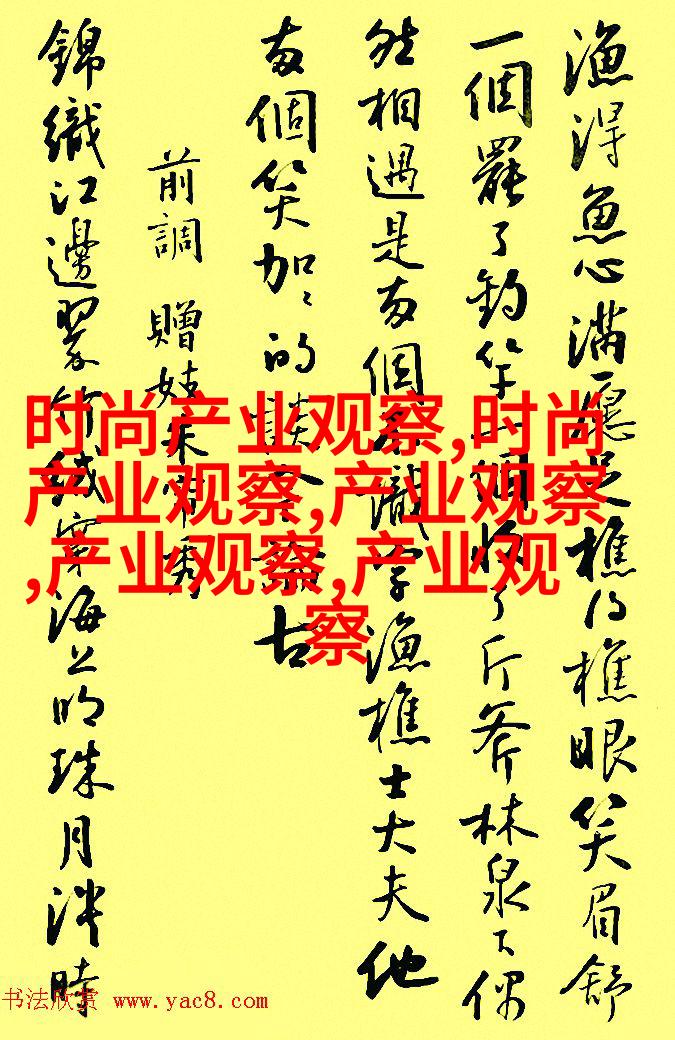 漁得魚心滿愿足樵得樵眼笑眉舒
一個罷了釣竿一個收了斤斧林泉下偶
然相遇是兩個不識字漁樵士大夫他
兩個笑加加的談今論古
前調 贈妓朱帘秀
錦織江邊翠竹絨穿海上明珠月淡時
时尚产业观察,时尚
产业观察,产业观察
,产业观察,产业观
察
书法欣赏 www.yac8.com